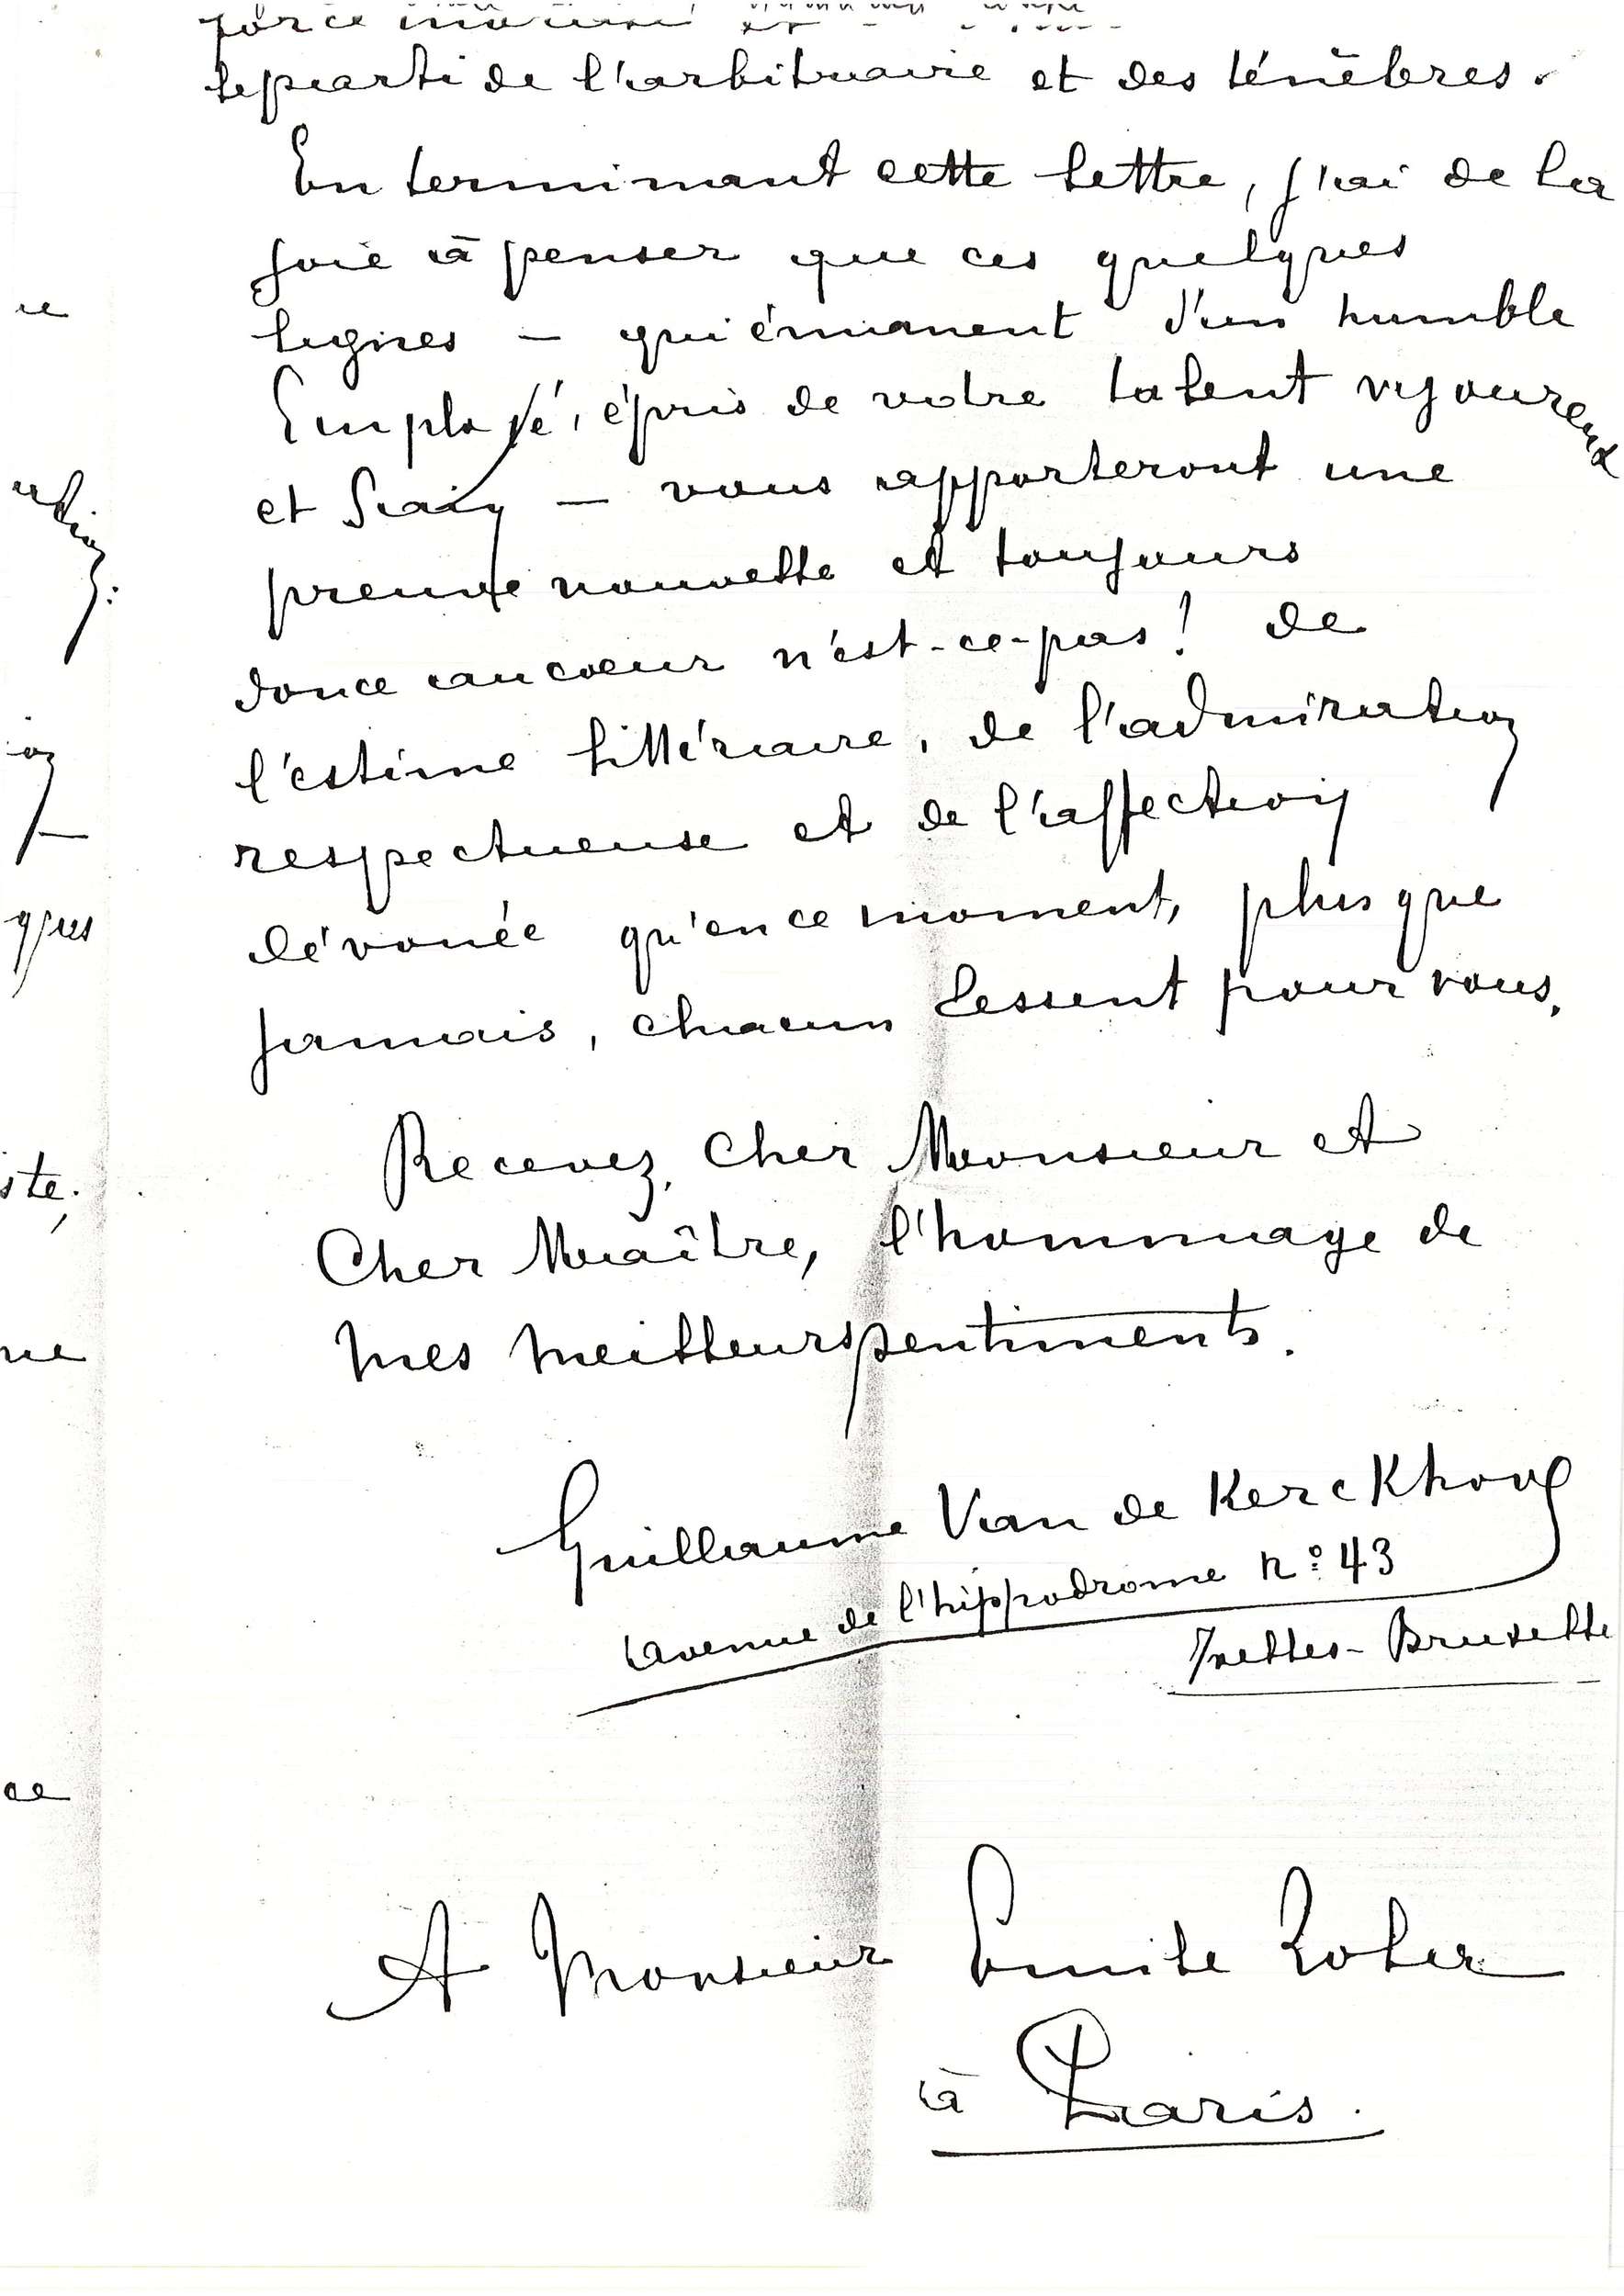 force morale
le parti de l'arbitraire et des ténèbres.
En terminant cette lettre, j'ai de la
joie à penser que ces quelques
lignes - qui émanent d'un humble
Employé, épris de votre talent vigoureux
et sain - vous apporteront une
preuve nouvelle et toujours
douce au coeur n'est-ce-pas! de
l'estime littéraire, de l'admiration
respectueuse et de l'affection
dévouée qu'en ce moment, plus que
jamais, chacun ressent pour vous.
Recevez, Cher Monsieur et
Cher Maître, l'hommage de
mes meilleurs sentiments.
Guillaume Van de Kerckhove
avenue de l'hippodrome n° 43
Ixelles - Bruxelle
A Monsieur Emile Zola
à Paris.
ue
ques
ste,
ne
ce